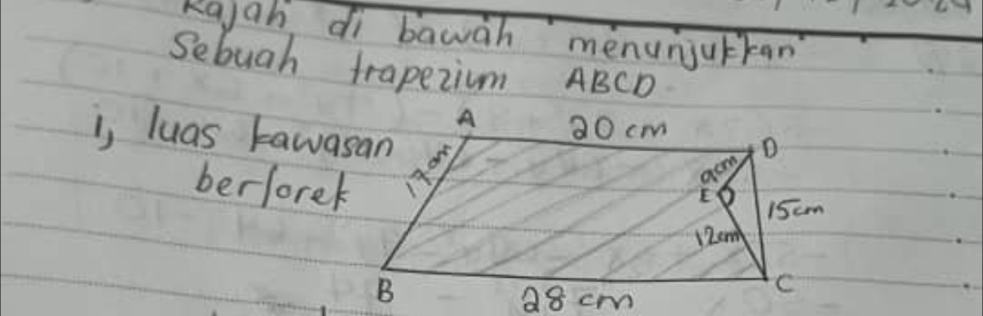 Rajah di bawah menunjukkan
Sebuah trapezium ABCD.
i, luas kawasan
berlorek
A
20 cm
D
17 cm
9cm
E
15cm
12cm
B
28 cm
C